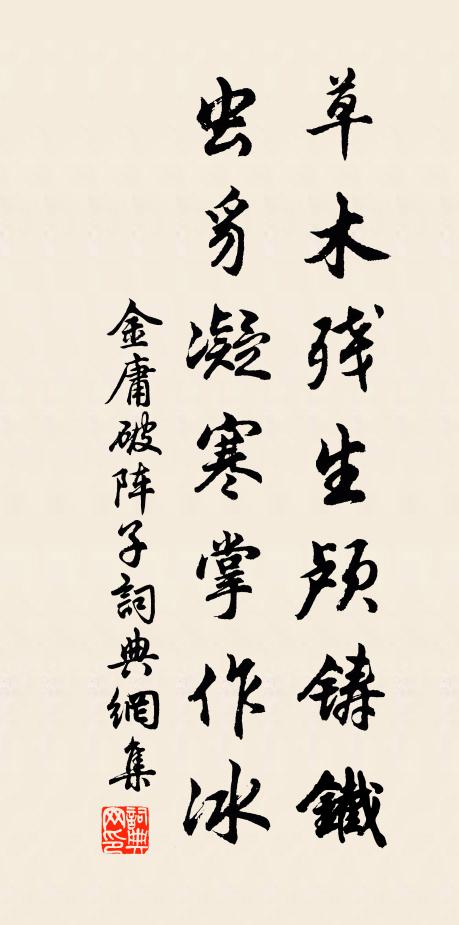 草木残生颅鑄鐵
虫豸凝寒掌作冰
金庸破阵子詞典網集
詞典网印